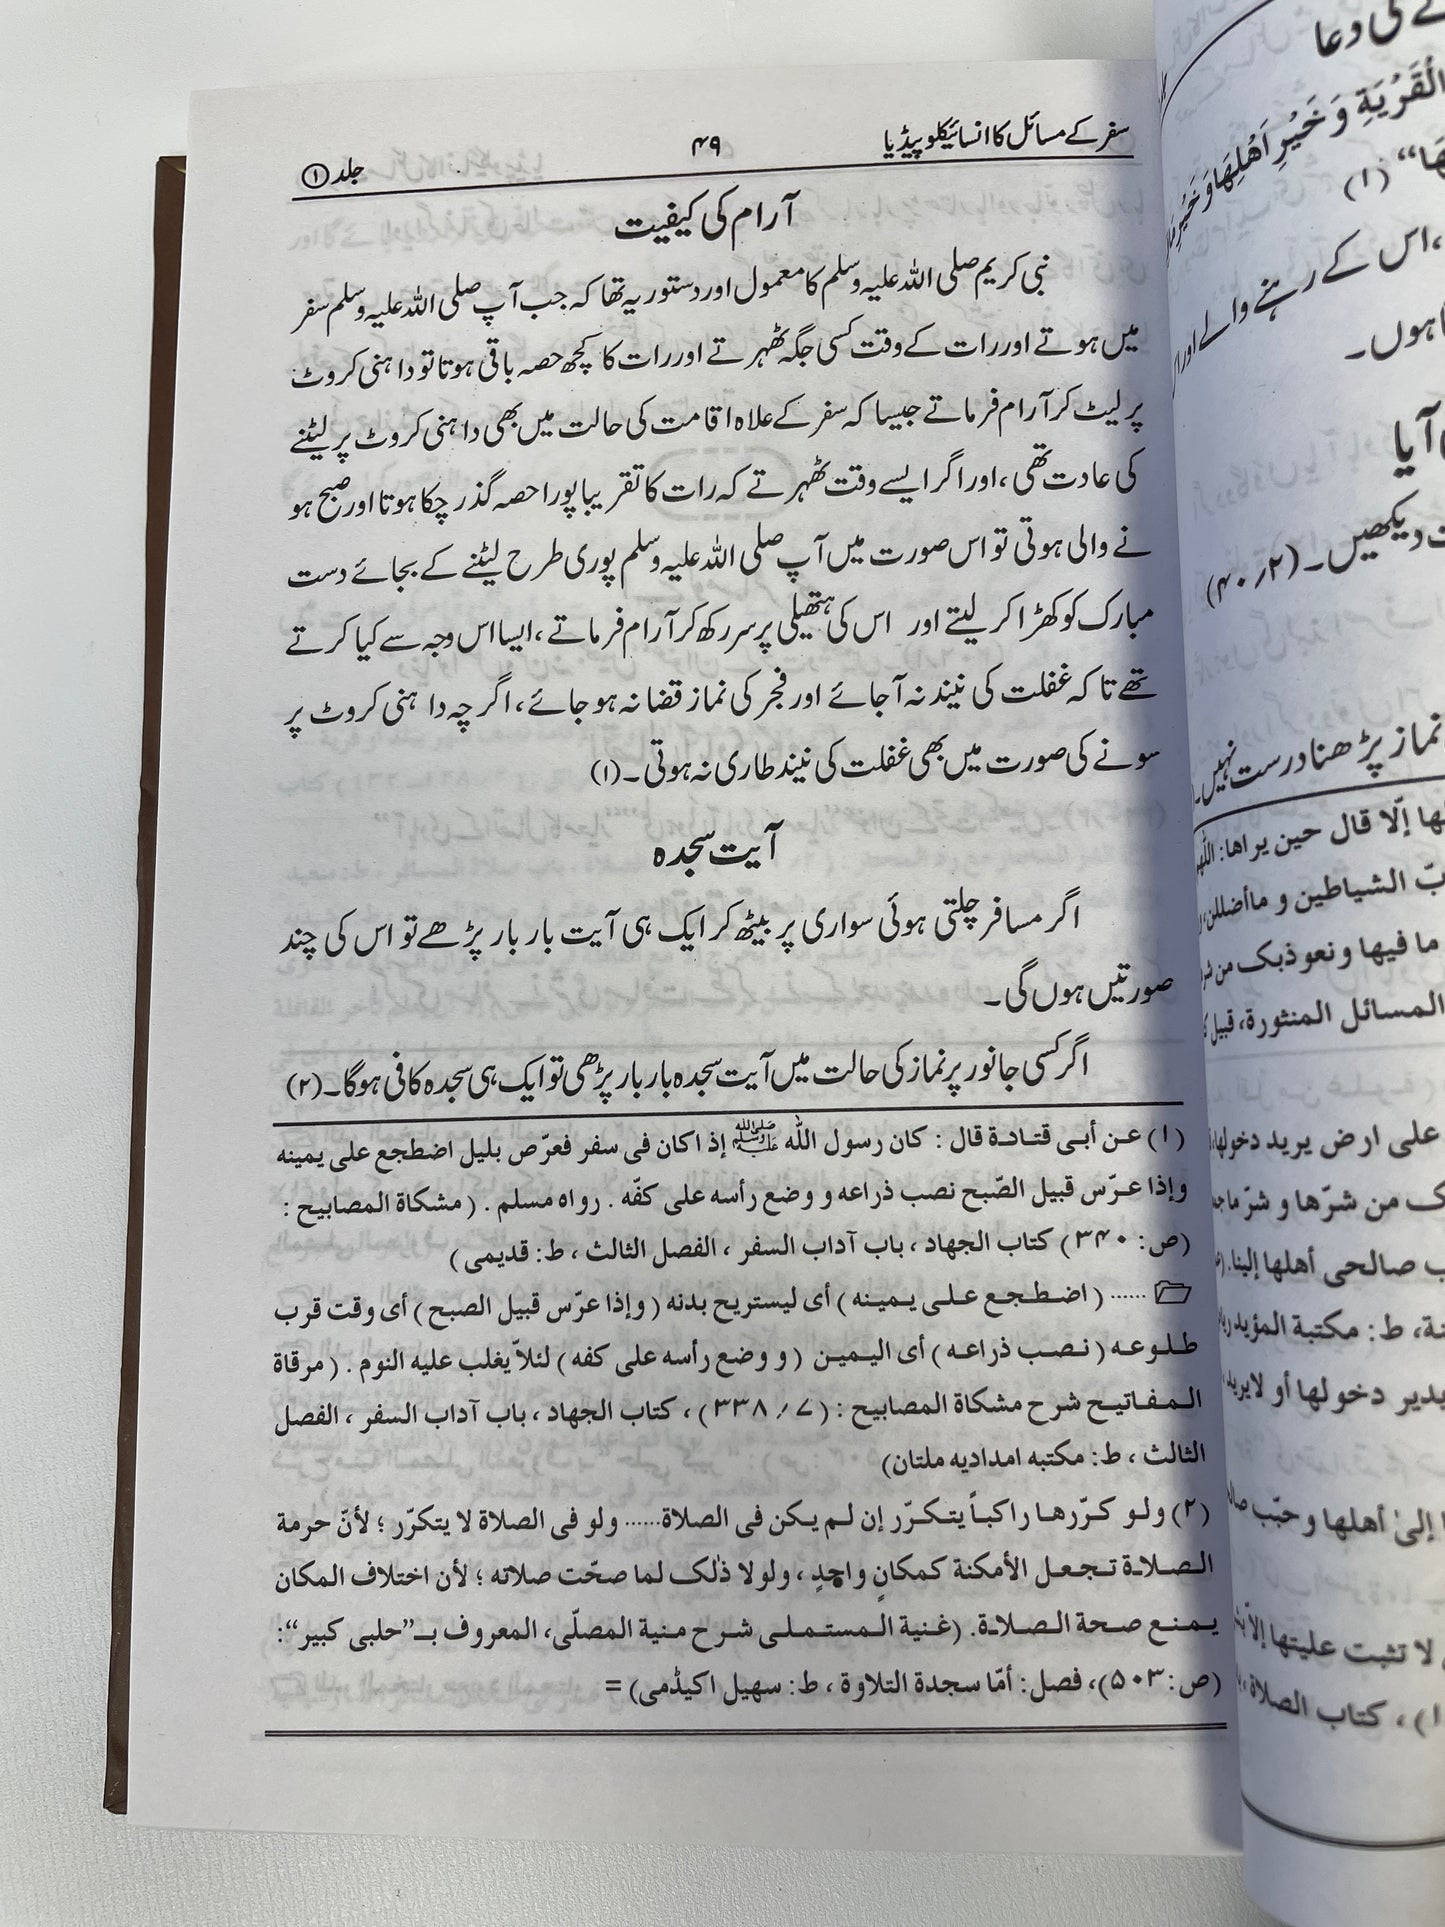 سفر کے مسائل کا انسائیکلوپیڈیا
۴۹
جلد ①
آرام کی کیفیت
نبی کریم صلی اللہ علیہ وسلم کا معمول اور دستور یہ تھا کہ جب آپ صلی اللہ علیہ وسلم سفر
میں ہوتے اور رات کے وقت کسی جگہ ٹھہرتے اور رات کا کچھ حصہ باقی ہوتا تو داہنی کروٹ
پر لیٹ کر آرام فرماتے جیسا کہ سفر کے علاہ اقامت کی حالت میں بھی داہنی کروٹ پر لیٹنے
کی عادت تھی، اور اگر ایسے وقت ٹھہرتے کہ رات کا تقریبا پورا حصہ گذر چکا ہوتا اور صبح ہو
نے والی ہوتی تو اس صورت میں آپ صلی اللہ علیہ وسلم پوری طرح لیٹنے کے بجائے دست
مبارک کو کھڑا کر لیتے اور اس کی ہتھیلی پر سر رکھ کر آرام فرماتے، ایسا اس وجہ سے کیا کرتے
تھے تاکہ غفلت کی نیند نہ آ جائے اور فجر کی نماز قضا نہ ہو جائے، اگر چہ داہنی کروٹ پر
سونے کی صورت میں بھی غفلت کی نیند طاری نہ ہوتی۔(۱)
آیت سجدہ
اگر مسافر چلتی ہوئی سواری پر بیٹھ کر ایک ہی آیت بار بار پڑھے تو اس کی چند
صورتیں ہوں گی۔
اگر کسی جانور پر نماز کی حالت میں آیت سجدہ بار بار پڑھی تو ایک ہی سجدہ کافی ہوگا۔(۲)
(۱) عن أبی قتادة قال : کان رسول اللّٰہ ﷺ إذا کان فی سفر فعرّس بلیل اضطجع علی یمینه
وإذا عرّس قبیل الصّبح نصب ذراعه و وضع رأسه علی کفّه . رواه مسلم . (مشکاة المصابیح :
(ص: ۳۴۰) کتاب الجهاد ، باب آداب السفر ، الفصل الثالث ، ط: قدیمی)
...... (اضطجع علی یمینه) أی لیستریح بدنه (وإذا عرّس قبیل الصبح) أی وقت قرب
طلوعه (نصب ذراعه) أی الیمین (و وضع رأسه علی کفه) لئلاّ یغلب علیه النوم . (مرقاة
المفاتیح شرح مشکاة المصابیح : (۷/ ۳۳۸) ، کتاب الجهاد ، باب آداب السفر ، الفصل
الثالث ، ط: مکتبه امدادیه ملتان)
(۲) ولو کرّرها راکباً یتکرّر إن لم یکن فی الصلاة...... ولو فی الصلاة لا یتکرّر ؛ لأنّ حرمة
الصلاة تجعل الأمکنة کمکانٍ واحدٍ ، ولولا ذٰلک لما صحّت صلاته ؛ لأن اختلاف المکان
یمنع صحة الصلاة. (غنیة المستملی شرح منیة المصلّی، المعروف بـ”حلبی کبیر“:
(ص: ۵۰۳)، فصل: أمّا سجدة التلاوة ، ط: سهیل اکیڈمی) =
کی دعا
القَرْیَةِ وَخَیْرِ اَهْلِهَا وَخَیْرِ
(۱)
، اس کے رہنے والے اور
ہوں۔
آیا
دیکھیں۔(۲/۴۰)
نماز پڑھنا درست نہیں۔
إلّا قال حین یراها: اللّٰهم
الشیاطین و ما أضللن
ما فیها و نعوذ بک من
المسائل المنثورة، قبیل
علی ارض یرید دخولها
من شرّها و شرّ ما
صالحی أهلها إلینا.
ط: مکتبة المؤید
دخولها أو لا یرید
إلیٰ أهلها و حبّب
لا تثبت علیتها إلاّ
، کتاب الصلاة